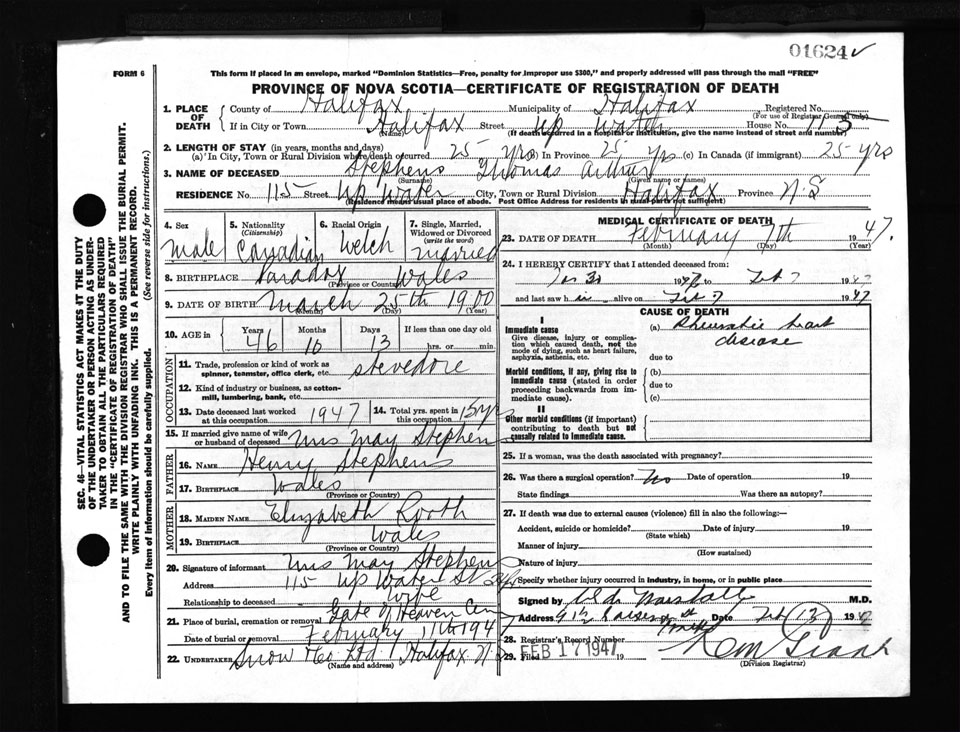 01624✓
FORM 6
This form if placed in an envelope, marked "Dominion Statistics—Free, penalty for improper use $300," and properly addressed will pass through the mail "FREE"
PROVINCE OF NOVA SCOTIA—CERTIFICATE OF REGISTRATION OF DEATH
1. PLACE OF DEATH { County of Halifax Municipality of Halifax Registered No.
(For use of Registrar General only)
If in City or Town Halifax Street Up Water House No. 115
(If death occurred in a hospital or institution, give the name instead of street and number)
2. LENGTH OF STAY (in years, months and days)
(a) In City, Town or Rural Division where death occurred 25 yrs (b) In Province 25 yrs (c) In Canada (if immigrant) 25 yrs
3. NAME OF DECEASED Stephens Thomas Arthur
(Surname) (Given name or names)
RESIDENCE No. 115 Street Up Water City, Town or Rural Division Halifax Province N.S
(Residence means usual place of abode. Post Office Address for residents in rural parts not sufficient)
4. Sex Male
5. Nationality (Citizenship) Canadian
6. Racial Origin Welch
7. Single, Married, Widowed or Divorced (write the word) married
8. BIRTHPLACE Wales
(Province or Country)
9. DATE OF BIRTH March 25th 1900
(Month) (Day) (Year)
10. AGE in { Years 46 Months 10 Days 13 If less than one day old hrs. or min.
OCCUPATION
11. Trade, profession or kind of work as spinner, teamster, office clerk, etc. stevedore
12. Kind of industry or business, as cotton-mill, lumbering, bank, etc.
13. Date deceased last worked at this occupation 1947
14. Total yrs. spent in this occupation 15 yrs
15. If married give name of wife or husband of deceased Mrs May Stephens
FATHER
16. NAME Henry Stephens
17. BIRTHPLACE Wales
(Province or Country)
MOTHER
18. MAIDEN NAME Elizabeth
19. BIRTHPLACE Wales
(Province or Country)
20. Signature of informant Mrs May Stephens
Address 115 Up Water St
Relationship to deceased Wife
21. Place of burial, cremation or removal Gate of Heaven Cem
Date of burial or removal February 11th 1947
22. UNDERTAKER Snow & Co Ltd Halifax N.S
(Name and address)
MEDICAL CERTIFICATE OF DEATH
23. DATE OF DEATH February 7th 1947.
(Month) (Day) (Year)
24. I HEREBY CERTIFY that I attended deceased from:
to Feb 7 1947
and last saw him alive on Feb 7 1947
CAUSE OF DEATH
I
Immediate cause
Give disease, injury or complication which caused death, not the mode of dying, such as heart failure, asphyxia, asthenia, etc.
(a) Rheumatic heart disease
due to
Morbid conditions, if any, giving rise to immediate cause (stated in order proceeding backwards from immediate cause).
(b)
due to
(c)
II
Other morbid conditions (if important) contributing to death but not causally related to immediate cause.
25. If a woman, was the death associated with pregnancy?
26. Was there a surgical operation? No Date of operation 19
State findings Was there an autopsy?
27. If death was due to external causes (violence) fill in also the following:—
Accident, suicide or homicide? Date of injury 19
(State which)
Manner of injury
(How sustained)
Nature of injury
Specify whether injury occurred in industry, in home, or in public place
Signed by M.D.
Address Date Feb 13 1947
28. Registrar's Record Number
29. Filed FEB 17 1947 19
(Division Registrar)
SEC. 46—VITAL STATISTICS ACT MAKES IT THE DUTY
OF THE UNDERTAKER OR PERSON ACTING AS UNDER-
TAKER TO OBTAIN ALL THE PARTICULARS REQUIRED
IN THE "CERTIFICATE OF REGISTRATION OF DEATH"
AND TO FILE THE SAME WITH THE DIVISION REGISTRAR WHO SHALL ISSUE THE BURIAL PERMIT.
WRITE PLAINLY WITH UNFADING INK. THIS IS A PERMANENT RECORD.
Every item of information should be carefully supplied. (See reverse side for instructions.)